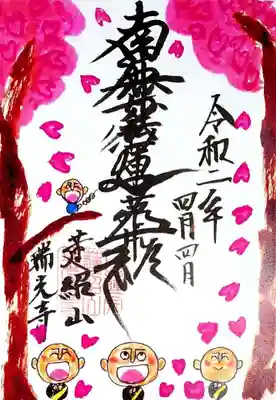 令和二年
四月四日
南無妙法蓮華経
紹山
瑞元寺